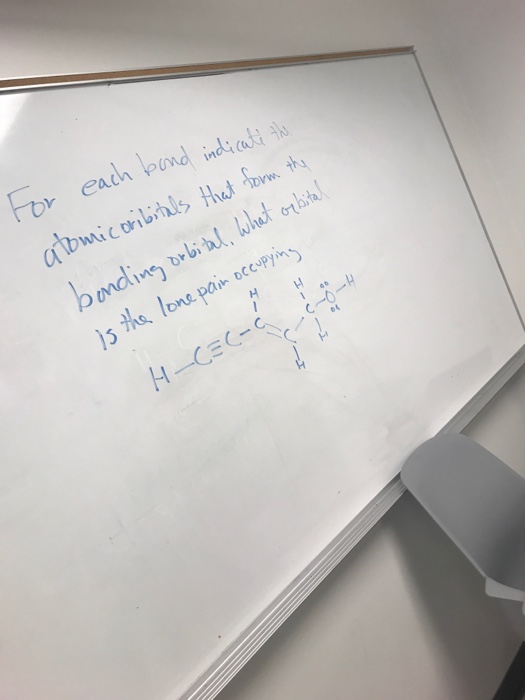 For each bond indicate the
atomic oribitals that form the
bonding orbital. What orbital
is the lone pair occupying
H H
H-C≡C-C=C-C-O-H
H H